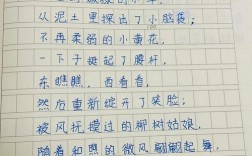 从泥土里探出了小脑袋；
不再柔弱的小黄花，
一下子挺起了腰杆，
东瞧瞧，西看看，
然后重新绽开了笑脸；
被风抚摸过的柳树姑娘，
随着和煦的微风翩翩起舞，